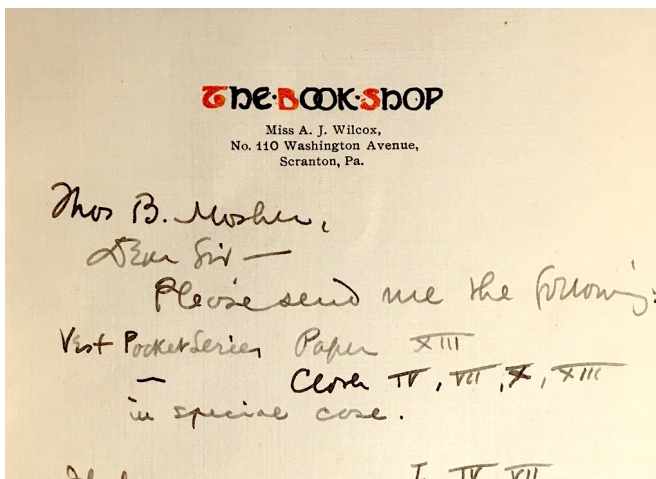 THE·BOOK·SHOP
Miss A. J. Wilcox,
No. 110 Washington Avenue,
Scranton, Pa.
Thos B. Mosher,
Dear Sir —
Please send me the following:
Vest Pocket Series Paper XIII
— Cloth IV, VII, X, XIII
in special case.
I IV VII